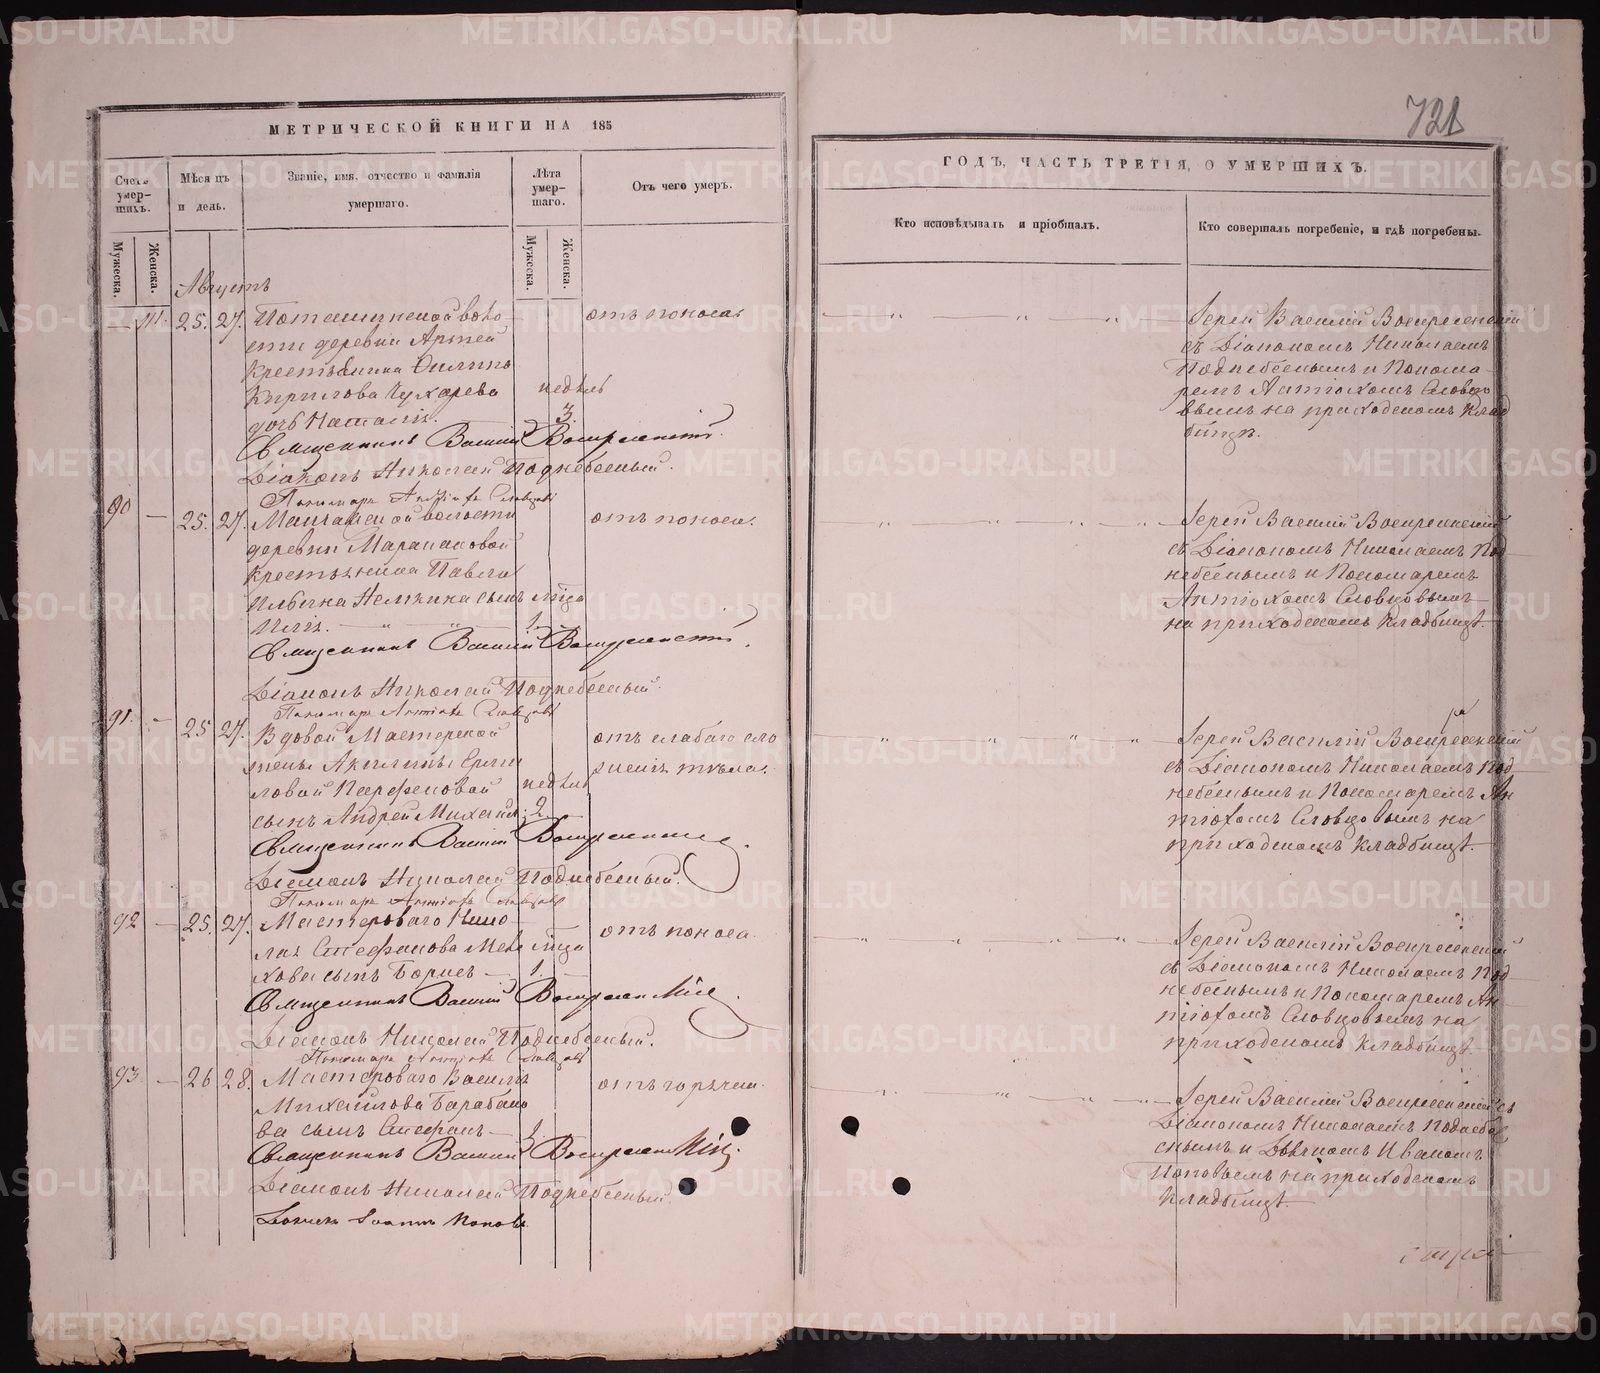 721
МЕТРИЧЕСКОЙ КНИГИ НА 185
ГОДЪ, ЧАСТЬ ТРЕТІЯ, О УМЕРШИХЪ.
Счетъ умер-шихъ.
Мѣсяцъ и день.
Званіе, имя, отчество и фамилія умершаго.
Лѣта умер-шаго.
Отъ чего умеръ.
Кто исповѣдывалъ и пріобщалъ.
Кто совершалъ погребеніе, и гдѣ погребены.
Мужеска.
Женска.
Мужеска.
Женска.
Августъ
— 111. 25. 27.
воло-
сти деревни
Крестьянина Филипа
Кирилова Чухарева
дочь Наталія.
недѣль
3.
отъ поноса
Священникъ Василій Воскресенскій.
Діаконъ Николай Поднебесный.
Пономарь Антіохъ Словцовъ
Іерей Василій Воскресенскій
съ Діакономъ Николаемъ
Поднебеснымъ и Понома-
ремъ Антіохомъ Словцо
вымъ на приходскомъ Клад
бищѣ.
90 — 25. 27.
волости
деревни
Крестьянина Павла
Ильина сынъ
Илія.
года
1.
отъ поноса.
Священникъ Василій Воскресенскій.
Діаконъ Николай Поднебесный.
Пономарь Антіохъ Словцовъ
Іерей Василій Воскресенскій
съ Діакономъ Николаемъ Под
небеснымъ и Пономаремъ
Антіохомъ Словцовымъ
на приходскомъ Кладбищѣ.
91. — 25 27.
Вдовой Мастерской
жены Акилины Ерми
ловой Парфеновой
сынъ Андрей Михайл.
недѣль
2.
отъ слабаго сло
женія тѣла.
Священникъ Василій Воскресенскій.
Діаконъ Николай Поднебесный.
Пономарь Антіохъ Словцовъ
Іерей Василій Воскресенскій
съ Діакономъ Николаемъ Под
небеснымъ и Пономаремъ Ан
тіохомъ Словцовымъ на
приходскомъ Кладбищѣ.
92 — 25. 27.
Мастероваго Нико
лая Стефанова
хова сынъ Борисъ —
года
1.
отъ поноса
Священникъ Василій Воскресенскій.
Діаконъ Николай Поднебесный.
Пономарь Антіохъ Словцовъ
Іерей Василій Воскресенскій
съ Діакономъ Николаемъ Под
небеснымъ и Пономаремъ Ан
тіохомъ Словцовымъ на
приходскомъ Кладбищѣ.
93 — 26 28.
Мастероваго Василья
Михайлова Барабано
ва сынъ Стефанъ —
отъ горячки.
Священникъ Василій Воскресенскій.
Діаконъ Николай Поднебесный.
Дьячекъ Іоаннъ Поповъ
Іерей Василій Воскресенскій съ
Діакономъ Николаемъ Поднебе
снымъ и Дьячкомъ Иваномъ
Поповымъ на приходскомъ
Кладбищѣ.
METRIKI.GASO-URAL.RU